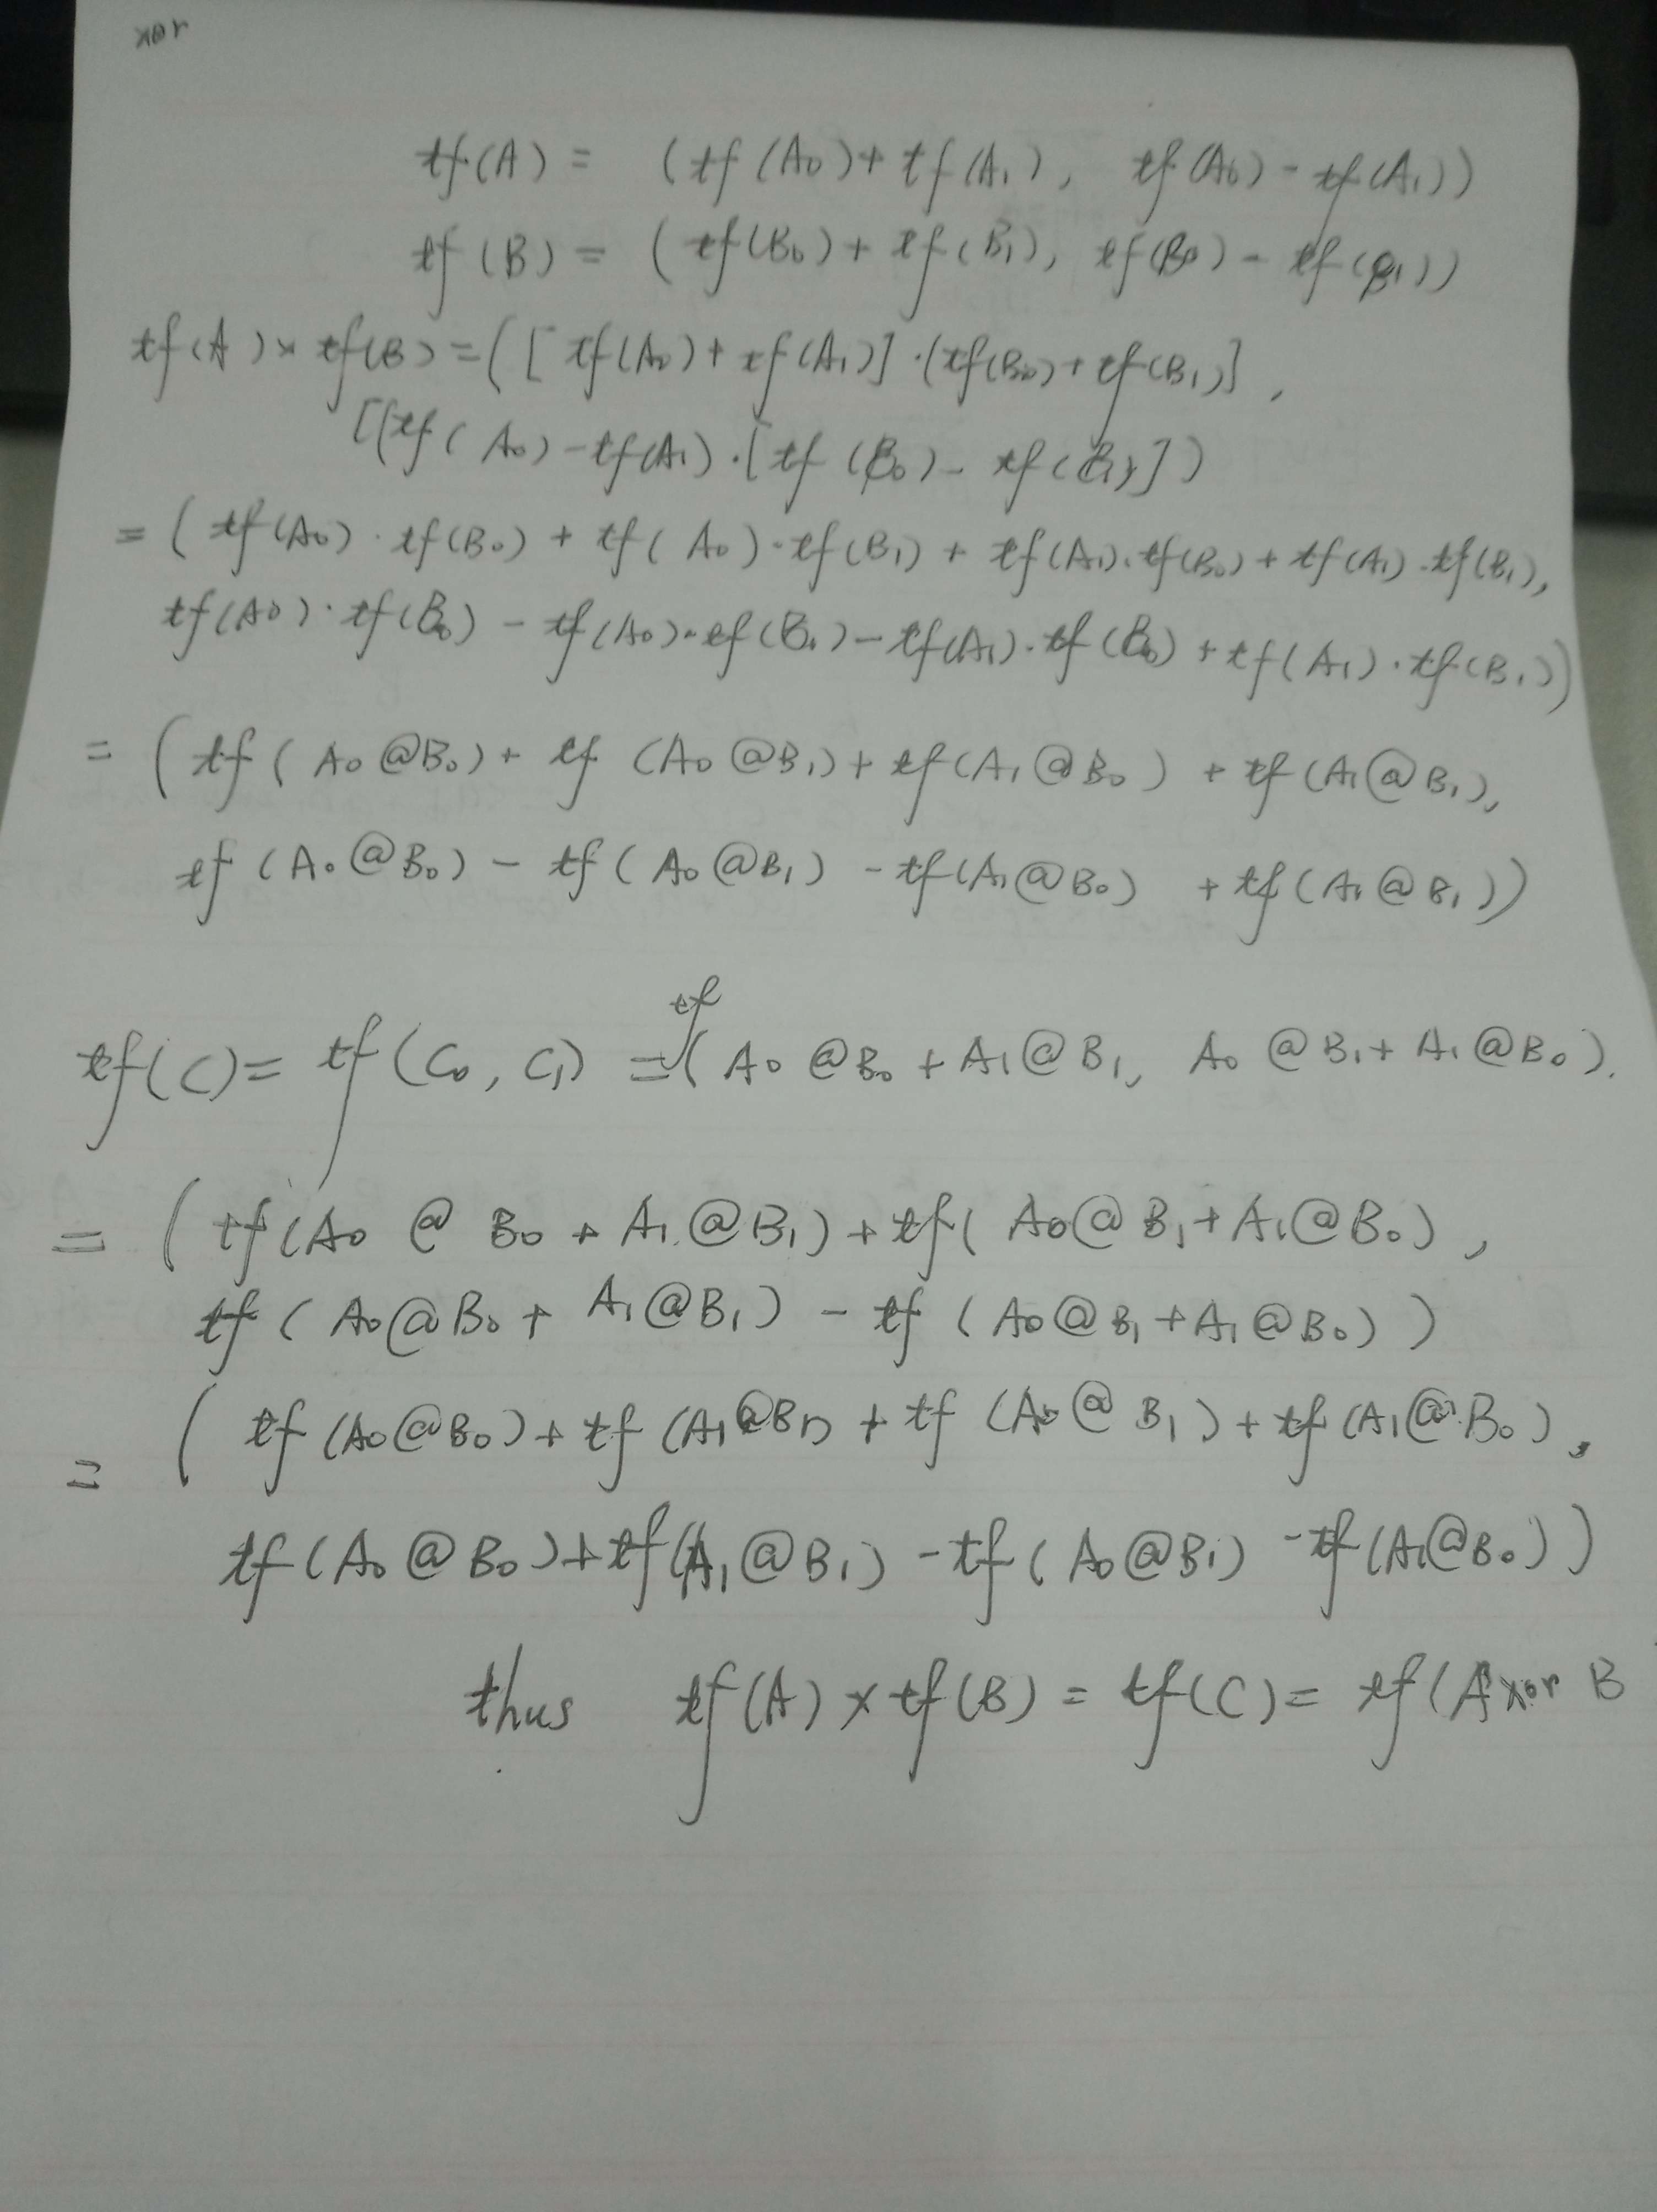 xor
tf(A) = (tf(A₀)+tf(A₁), tf(A₀)-tf(A₁))
tf(B) = (tf(B₀)+tf(B₁), tf(B₀)-tf(B₁))
tf(A)×tf(B)=([tf(A₀)+tf(A₁)]·(tf(B₀)+tf(B₁)],
[(tf(A₀)-tf(A₁)·[tf(B₀)-tf(B₁)])
=(tf(A₀)·tf(B₀)+tf(A₀)·tf(B₁)+tf(A₁)·tf(B₀)+tf(A₁)·tf(B₁),
tf(A₀)·tf(B₀)-tf(A₀)·tf(B₁)-tf(A₁)·tf(B₀)+tf(A₁)·tf(B₁))
=(tf(A₀@B₀)+tf(A₀@B₁)+tf(A₁@B₀)+tf(A₁@B₁),
tf(A₀@B₀)-tf(A₀@B₁)-tf(A₁@B₀)+tf(A₁@B₁))
tf(C)=tf(C₀,C₁)=tf(A₀@B₀+A₁@B₁, A₀@B₁+A₁@B₀).
=(tf(A₀@B₀+A₁@B₁)+tf(A₀@B₁+A₁@B₀),
tf(A₀@B₀+A₁@B₁)-tf(A₀@B₁+A₁@B₀))
=(tf(A₀@B₀)+tf(A₁@B₁)+tf(A₀@B₁)+tf(A₁@B₀),
tf(A₀@B₀)+tf(A₁@B₁)-tf(A₀@B₁)-tf(A₁@B₀))
thus tf(A)×tf(B)=tf(C)=tf(A xor B